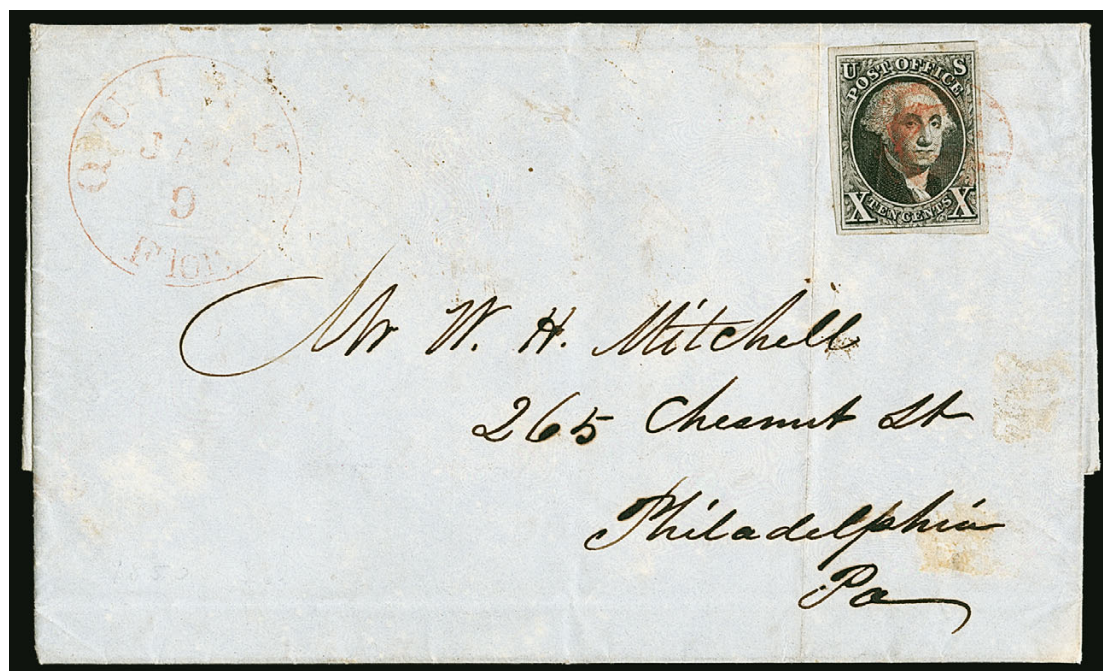 QUINCY
JAN
9
U POST OFFICE S
X TEN CENTS X
Mr W. H. Mitchell
265 Chesnut St
Philadelphia
Pa